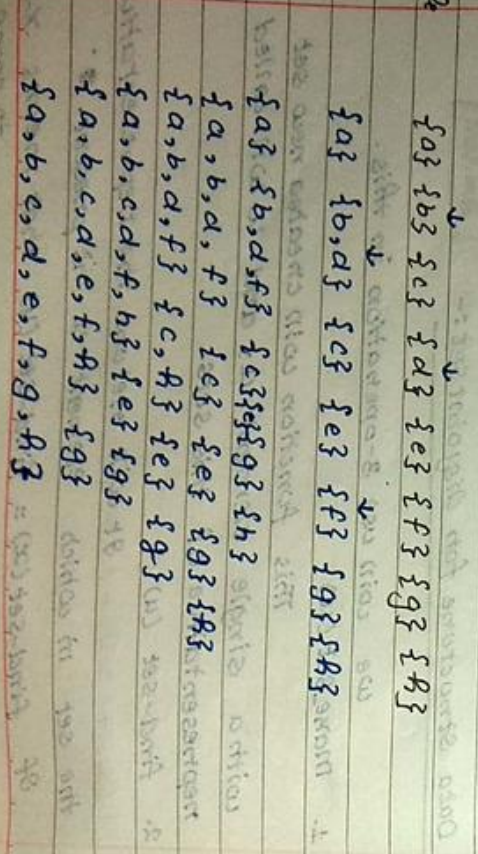 {a} {b} {c} {d} {e} {f} {g} {h}
{a} {b,d} {c} {e} {f} {g} {h}
{a} {b,d,f} {c} {e} {g} {h}
{a,b,d,f} {c} {e} {g} {h}
{a,b,d,f} {c,h} {e} {g}
{a,b,c,d,f,h} {e} {g}
{a,b,c,d,e,f,h} {g}
{a,b,c,d,e,f,g,h}